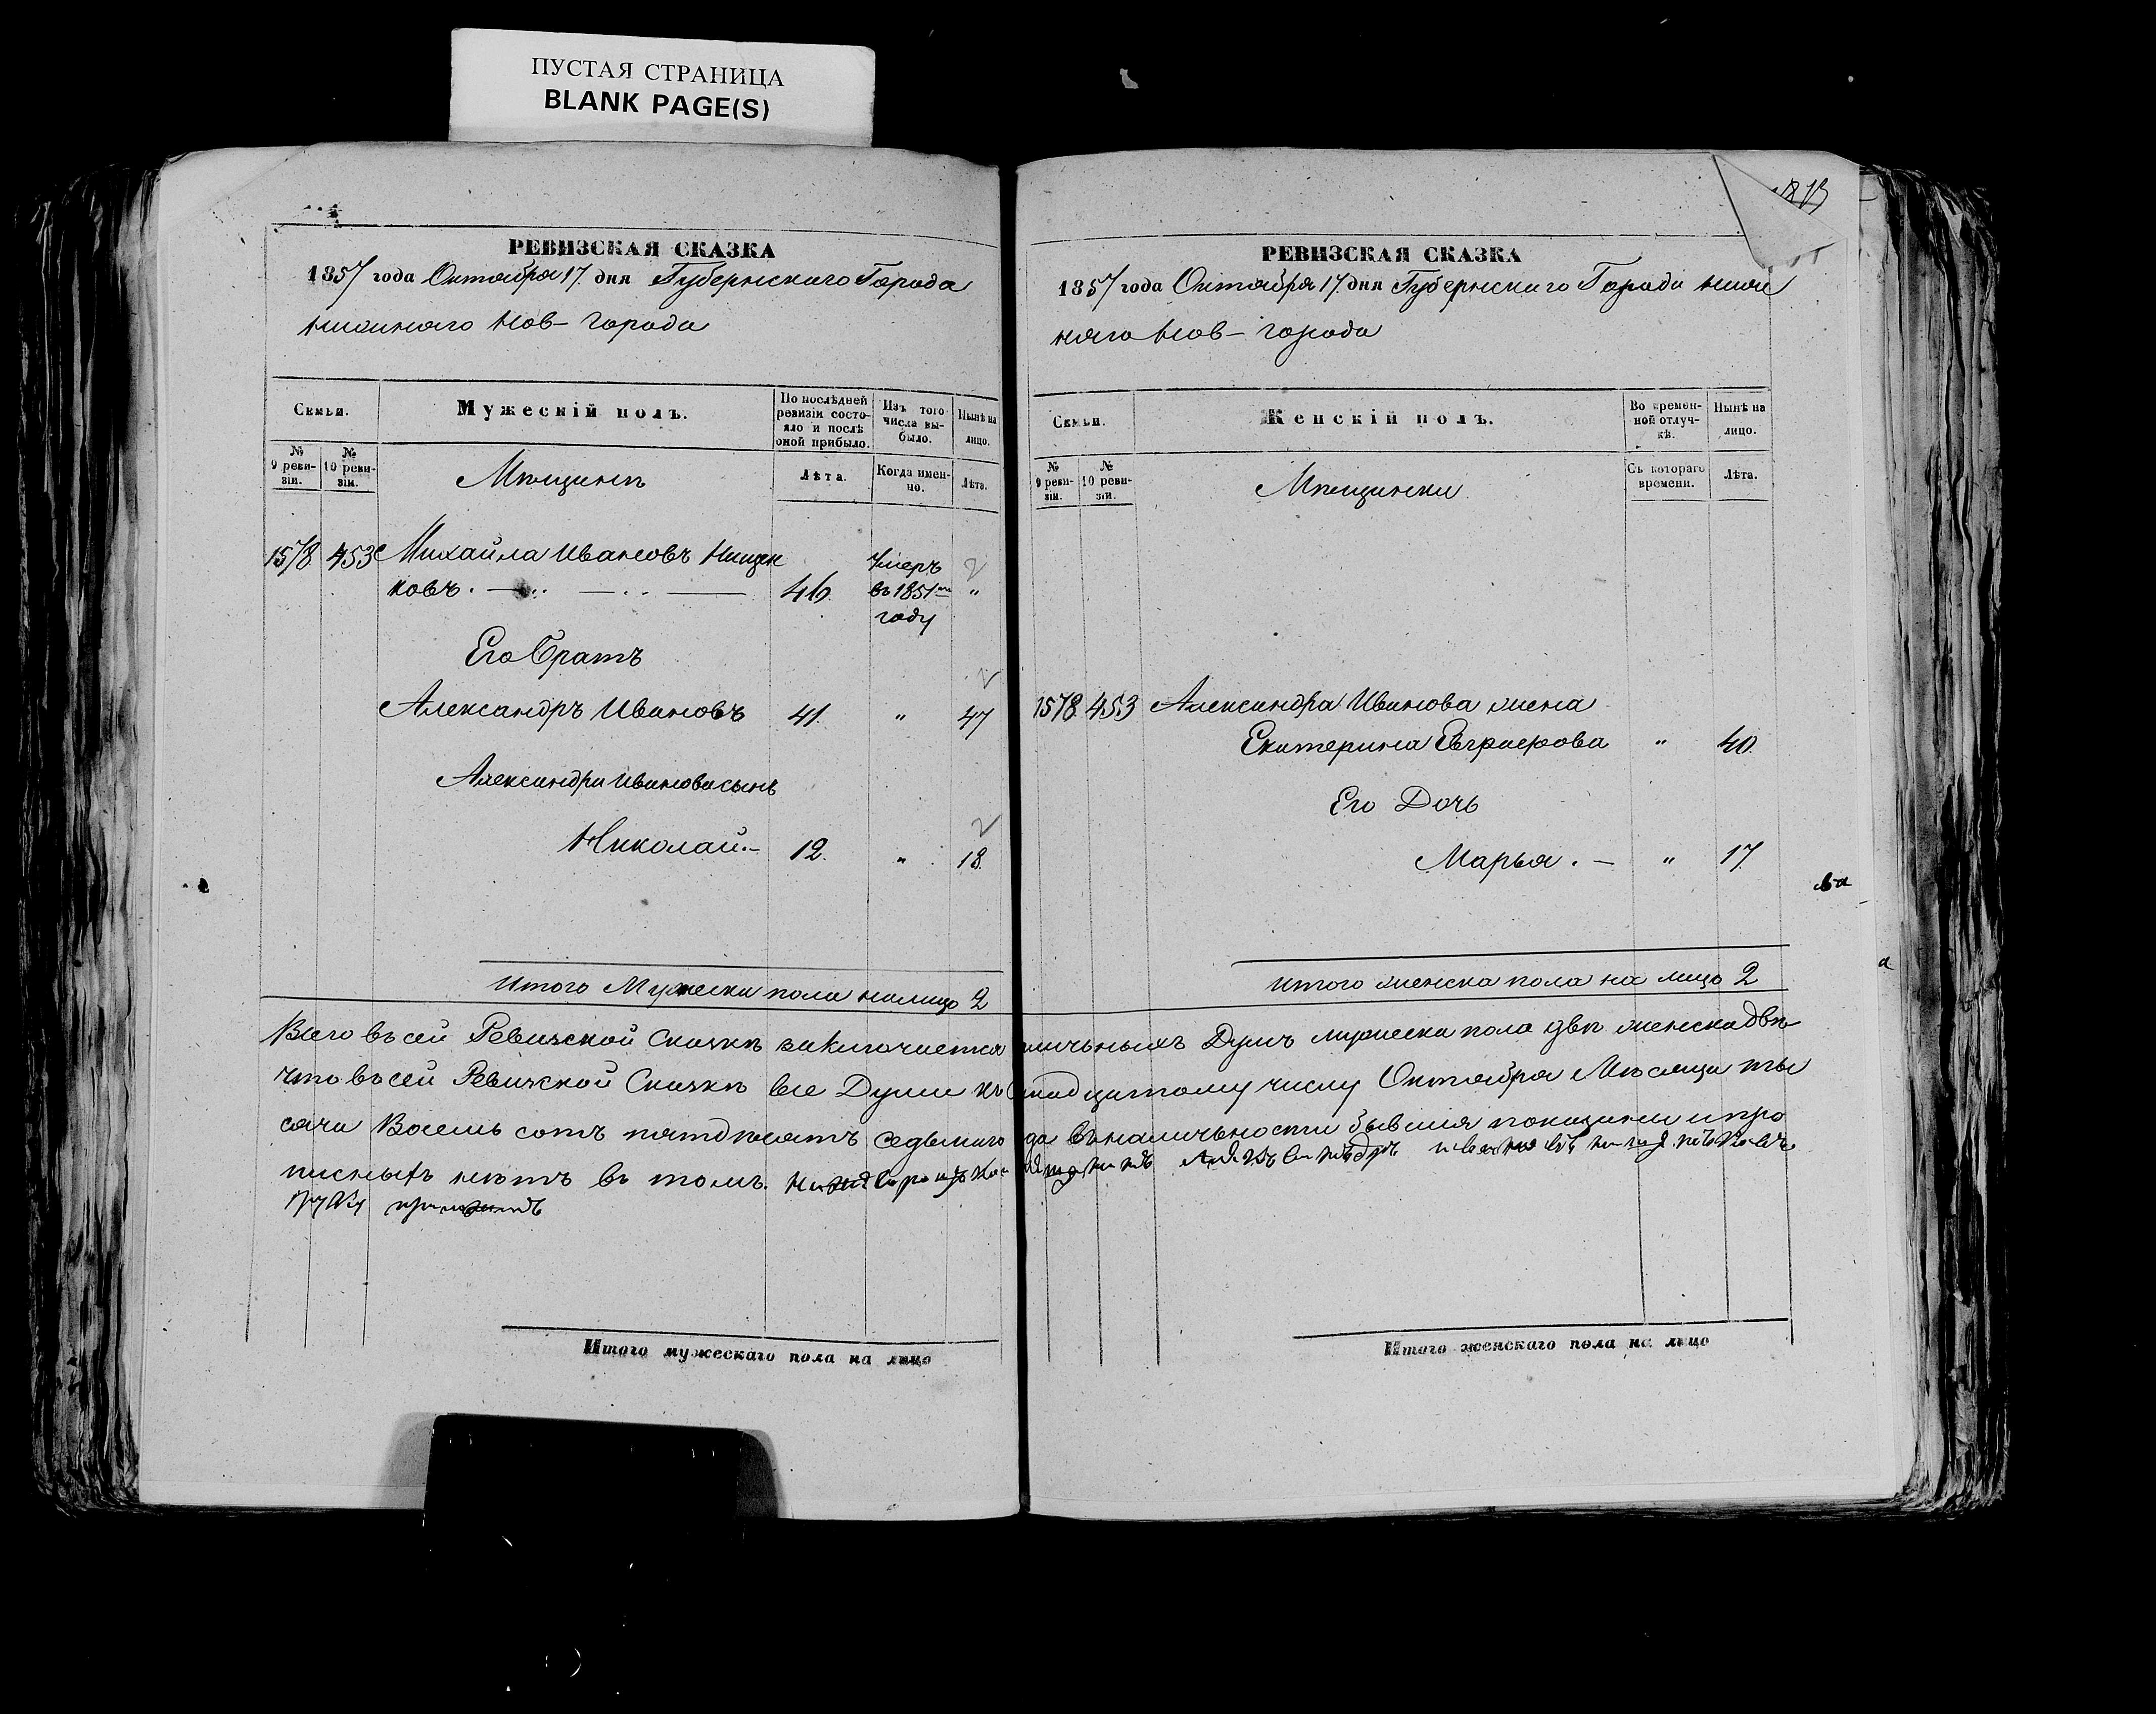 ПУСТАЯ СТРАНИЦА
BLANK PAGE(S)
РЕВИЗСКАЯ СКАЗКА
1857 года Октября 17. дня Губернскаго Города
Нижняго Нов-города
Семьи.
Мужескій полъ.
По послѣдней ревизіи состояло и послѣ оной прибыло.
Изъ того числа выбыло.
Нынѣ на лицо.
№ 9 ревизіи.
№ 10 ревизіи.
Мѣщинъ
Лѣта.
Когда именно.
Лѣта.
1578 453 Михайла Ивановъ
ковъ. 46. Умеръ въ 1851 году "
Его Братъ
Александръ Ивановъ 41. " 47
Александра Иванова сынъ
Николай. 12. " 18.
Итого Мужеска пола налицо 2
РЕВИЗСКАЯ СКАЗКА
1857 года Октября 17. дня Губернскаго Города Ниж
няго Нов-города
Семьи.
Женскій полъ.
Во временной отлучкѣ.
Нынѣ на лицо.
№ 9 ревизіи.
№ 10 ревизіи.
Мѣщинки
Съ котораго времени.
Лѣта.
1578 453 Александра Иванова жена
Екатерина Евграфова " 40.
Его Дочь
Марья. " 17.
ва
Итого женска пола на лицо 2
Всего въ сей Ревизской Сказкѣ заключается наличныхъ Душъ мужеска пола двѣ женска двѣ
что въ сей Ревизской Сказкѣ все Души къ цатому числу Октября Мѣсяца ты
сячи Восемь сотъ пятдесятъ седьмаго да въ наличности бывшія показаны и про
писныхъ нѣтъ въ томъ. ивановъ
руку
Итого мужескаго пола на лицо
Итого женскаго пола на лицо